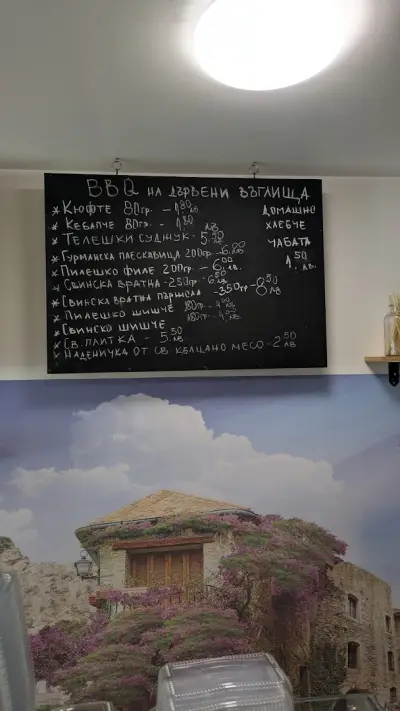 BBQ НА ДЪРВЕНИ ВЪГЛИЩА
* КЮФТЕ 80гр. – 1,80 лв
* КЕБАПЧЕ 80гр. – 1,80 лв
* ТЕЛЕШКИ СУДЖУК – 5,50 лв
* ГУРМАНСКА ПЛЕСКАВИЦА 200гр. – 6,00 лв
* ПИЛЕШКО ФИЛЕ 200гр. – 6,00 лв.
* СВИНСКА ВРАТНА – 250гр – 6,50 лв.
* СВИНСКА ВРАТНА ПАРЖОЛА – 350гр – 8,50 лв
* ПИЛЕШКО ШИШЧЕ 180гр. – 4,00 лв
* СВИНСКО ШИШЧЕ 180гр. – 4,00 лв.
* СВ. ПЛИТКА – 5,50 лв
* НАДЕНИЧКА ОТ СВ КЪЛЦАНО МЕСО – 2,50 лв
ДОМАШНО
ХЛЕБЧЕ
ЧАБАТА
1,50 лв.